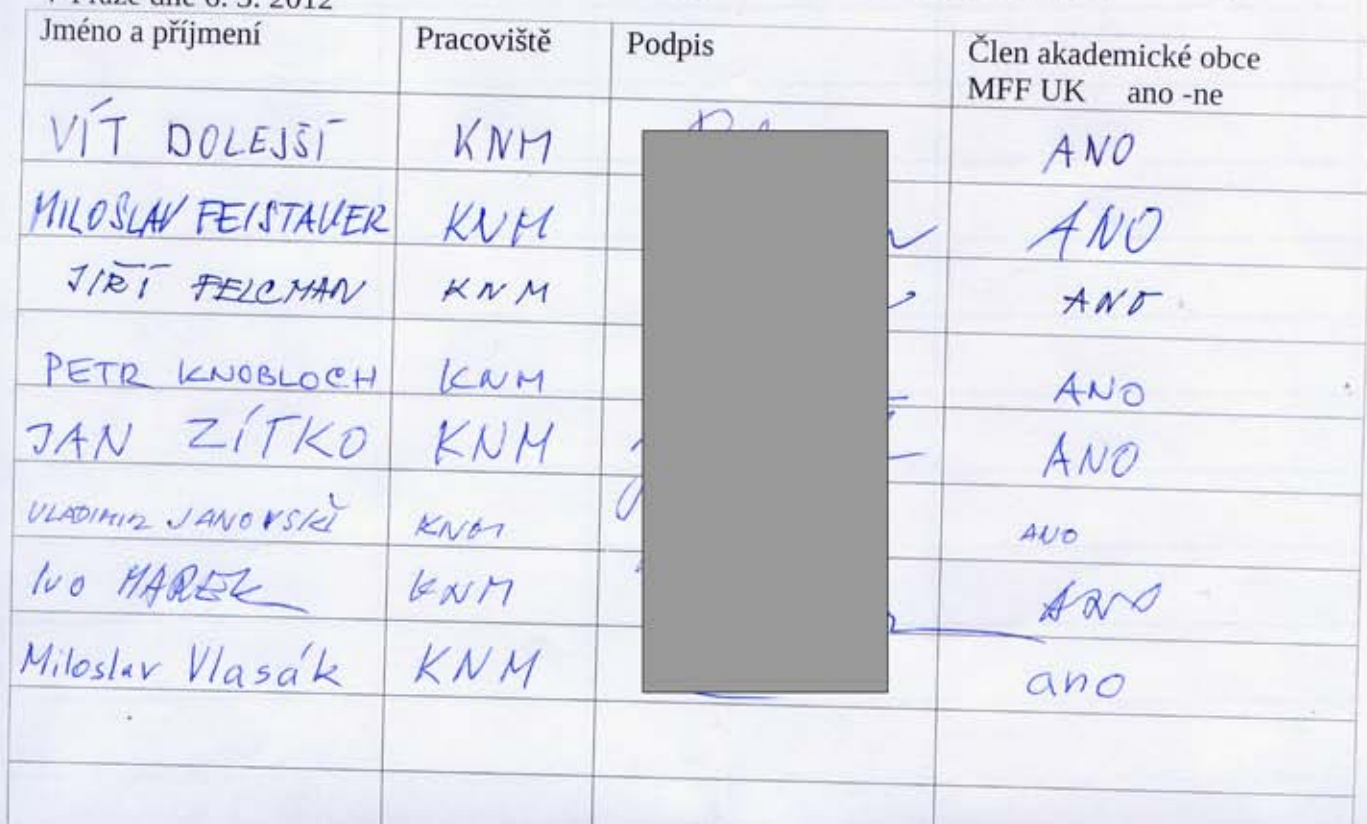 V Praze dne 6. 3. 2012
Jméno a příjmení Pracoviště Podpis Člen akademické obce
MFF UK ano -ne
VÍT DOLEJŠÍ KNM ANO
MILOSLAV FEISTAUER KNM ANO
JIŘÍ FELCMAN KNM ANO
PETR KNOBLOCH KNM ANO
JAN ZÍTKO KNM ANO
VLADIMIR JANOVSKÝ KNM ANO
IVO MAREK KNM ANO
Miloslav Vlasák KNM ano